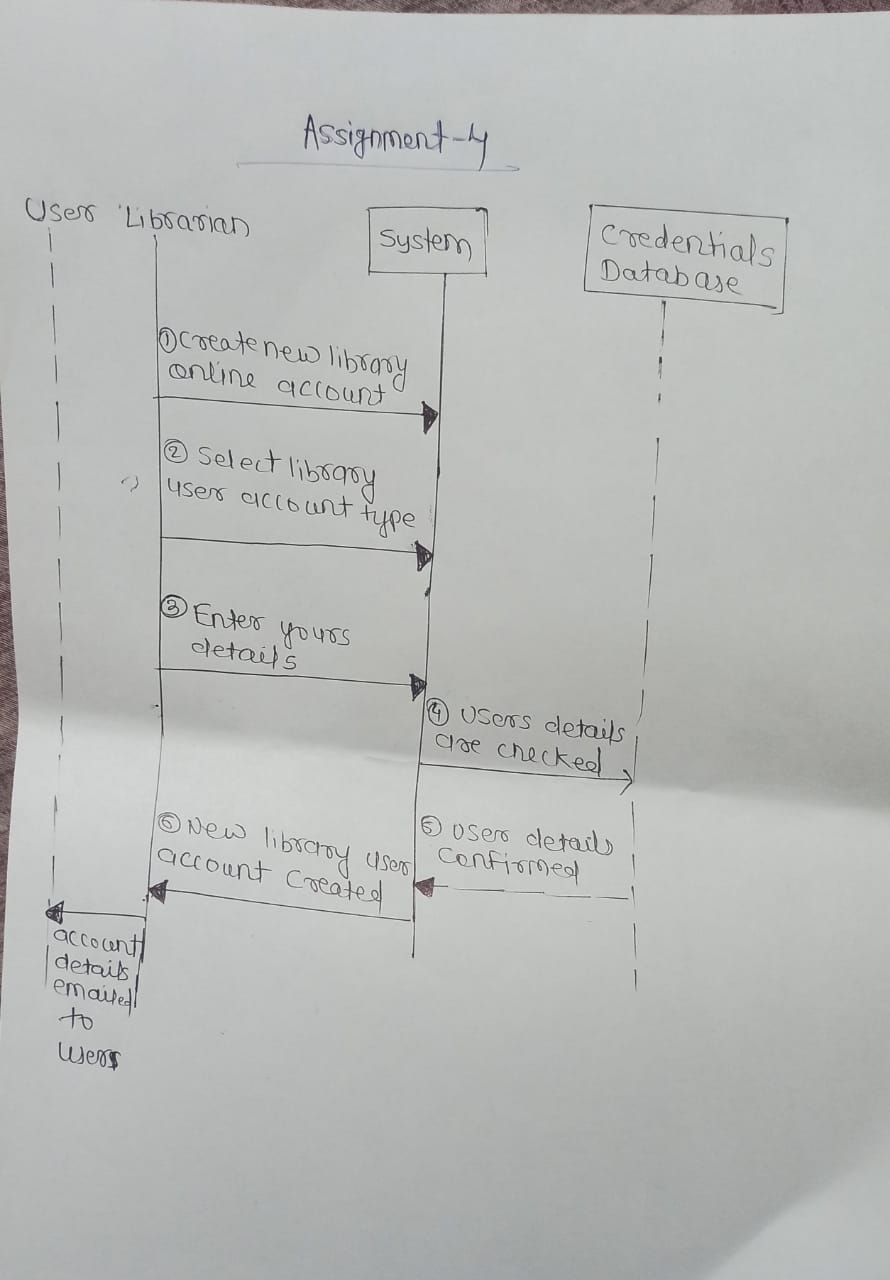 Assignment-4
User Librarian
System
Credentials
Database
① Create new library
online account
② Select library
user account type
③ Enter yours
details
④ Users details
are checked
⑤ User details
confirmed
⑥ New library user
account created
account
details
emailed
to
users